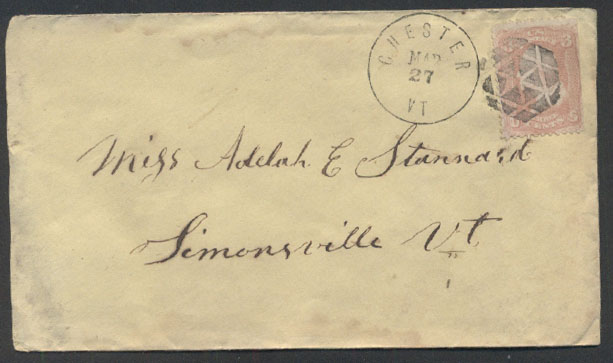 CHESTER
MAR
27
VT
3 3
CENTS
Miss Adelah E Stannard
Simonsville Vt